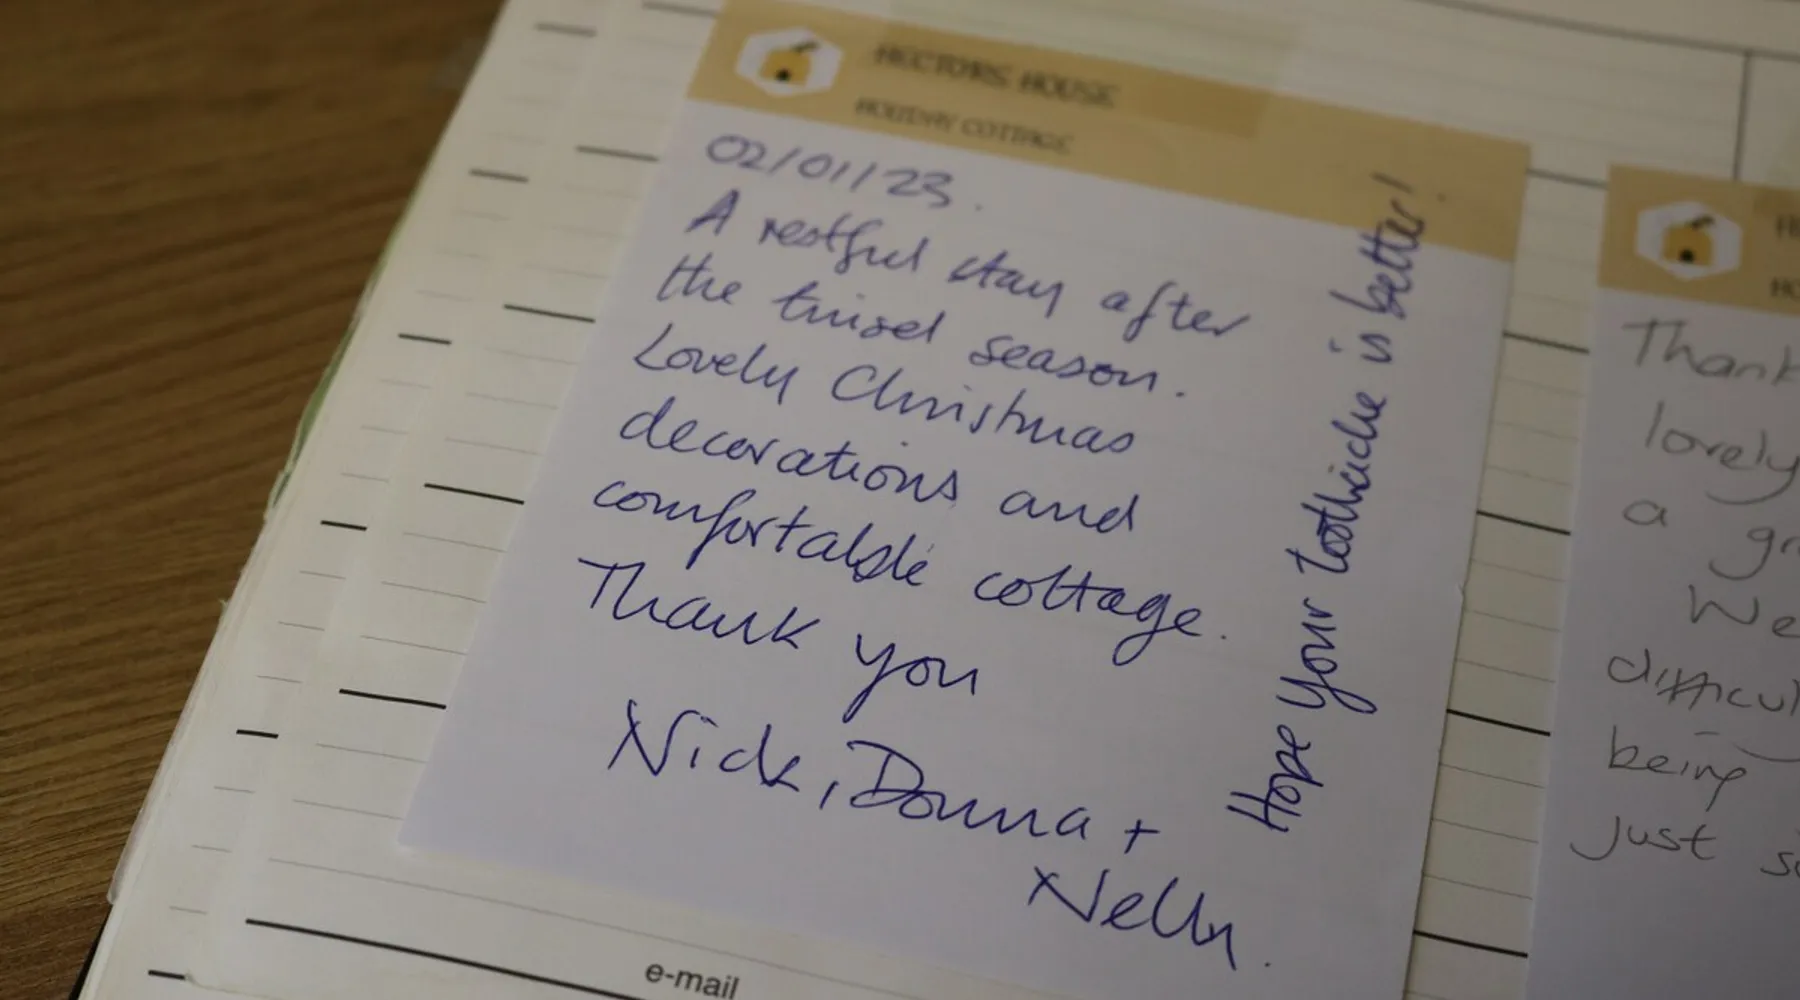 HECTORS HOUSE
HOLIDAY COTTAGE
02/01/23.
A restful stay after
the tinsel season.
Lovely Christmas
decorations and
comfortable cottage.
Thank you
Nick, Donna +
Nelly.
Hope your toothache is better!
e-mail
Thank
lovely
a gr
We
difficul
being
just s